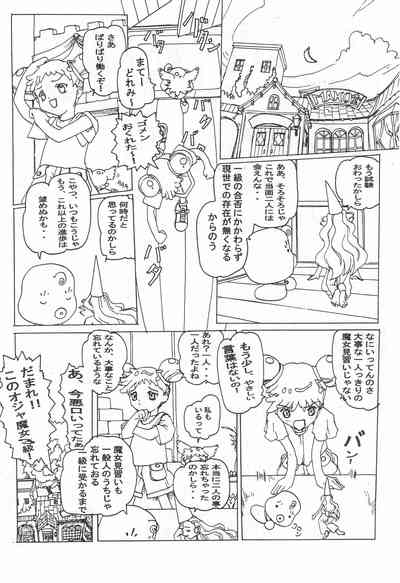 MAHO
もう試験
おわったかしら
ああ、そろそろじゃ
これで当面二人には
会えんな・・
一級の合否にかかわらず
現世での存在が無くなる
からのう
まてー
どれみ～
ゴメン
おくれた～！
ドタドタ
さあ
ばりばり働くぞ！
何時だと
思ってるのかしら
こやつ、いつもこうじゃ
もう、これ以上の進歩は
望めぬかも・・
なにいってんのさ
大事な一人っきりの
魔女見習いじゃない
バン！
もう少し、やさしい
言葉はないの！
あれ？一人・・
一人だったよね
なんか、大事なこと
忘れているような
私も
いるって
本当に二人の事
忘れちゃった
のかしら・・
魔女見習いも
一般人のうちじゃ
一級に受かるまで
忘れておる
あ、今悪口いってたぁ
だまれ！！
このオジャ魔女３級！